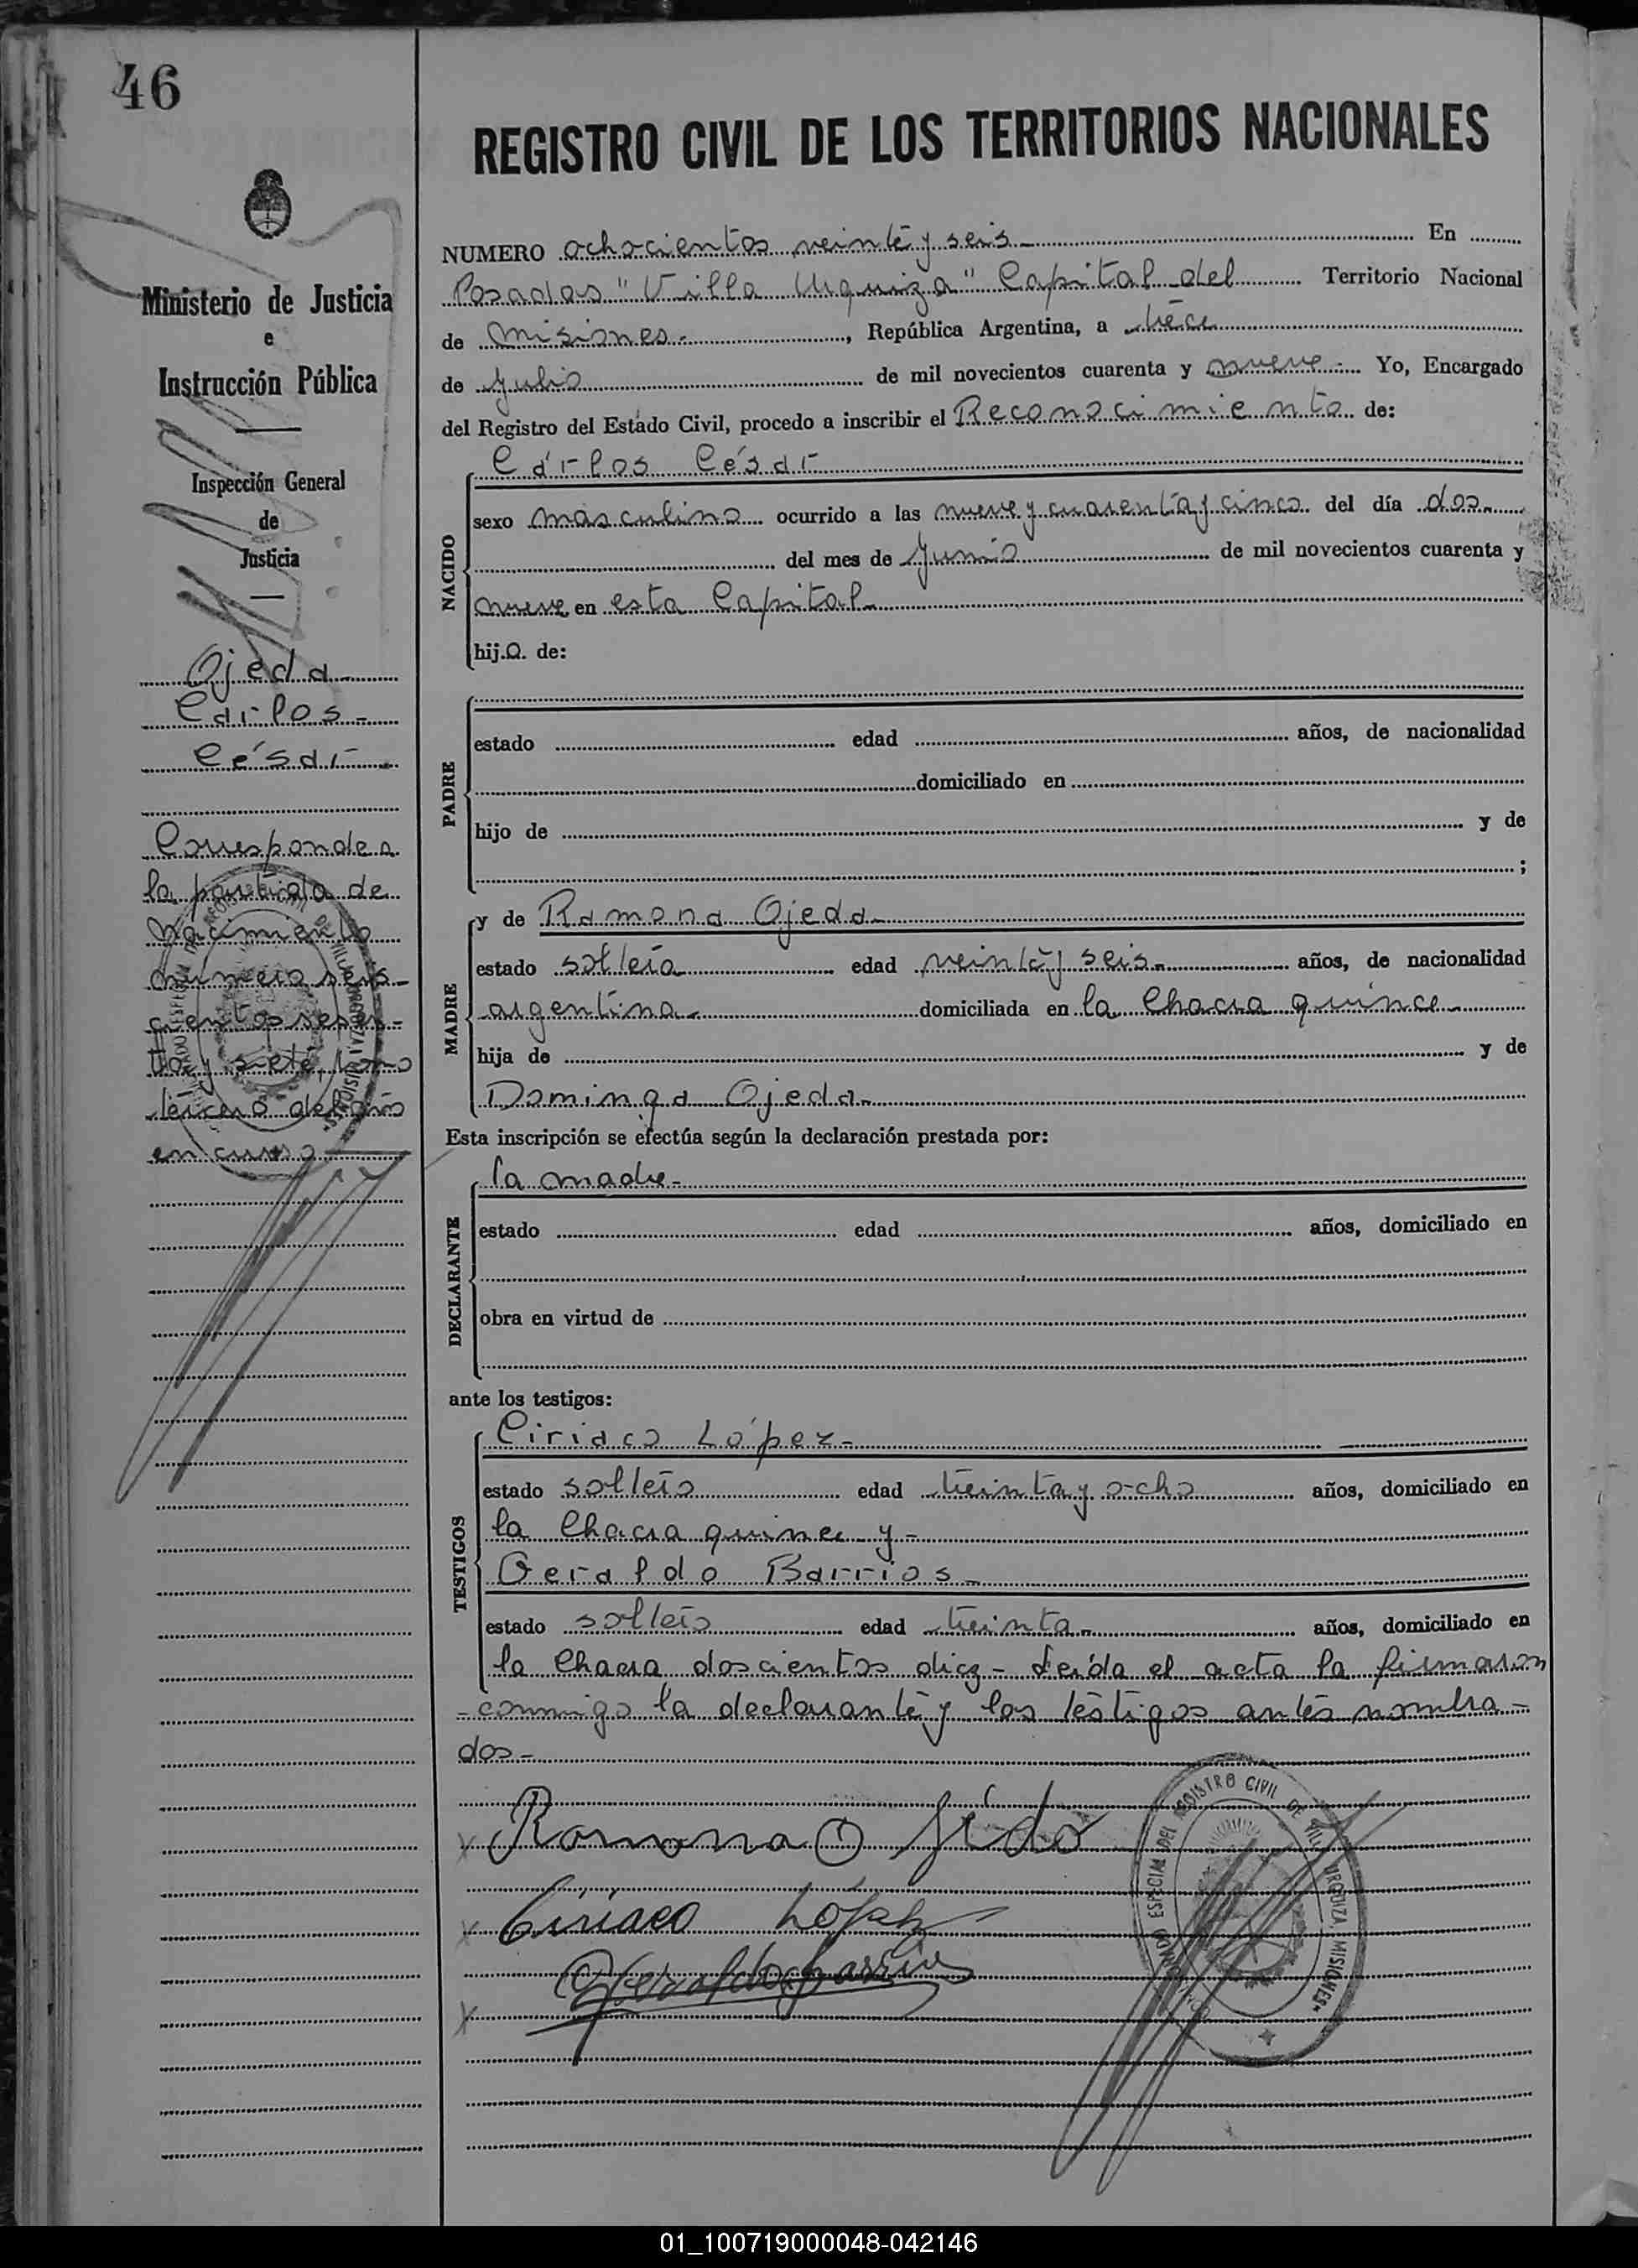 46
REGISTRO CIVIL DE LOS TERRITORIOS NACIONALES
Ministerio de Justicia
e
Instrucción Pública
Inspección General
de
Justicia
Ojeda
Carlos
César
Corresponde a
la partida de
Nacimiento
número seis-
cientos sesen-
ta y siete, tomo
tercero del año
en curso
NUMERO ochocientos veinte y seis En
Posadas "Villa Urquiza" Capital del Territorio Nacional
de Misiones , República Argentina, a trece
de Julio de mil novecientos cuarenta y nueve Yo, Encargado
del Registro del Estado Civil, procedo a inscribir el Reconocimiento de:
Carlos César
NACIDO
sexo masculino ocurrido a las nueve y cuarenta y cinco del día dos
del mes de Junio de mil novecientos cuarenta y
nueve en esta Capital
hijo de:
PADRE
estado edad años, de nacionalidad
domiciliado en
hijo de y de
;
MADRE
y de Ramona Ojeda
estado soltera edad veinte y seis años, de nacionalidad
argentina domiciliada en la Chacra quince
hija de y de
Dominga Ojeda
Esta inscripción se efectúa según la declaración prestada por:
DECLARANTE
la madre
estado edad años, domiciliado en
obra en virtud de
ante los testigos:
TESTIGOS
Ciriaco López
estado soltero edad treinta y ocho años, domiciliado en
la Chacra quince y
Geraldo Barrios
estado soltero edad treinta años, domiciliado en
la Chacra doscientos diez - Leída el acta la firmaron
conmigo la declarante y los testigos antes nombra-
dos
Ramona Ojeda
Ciriaco López
Geraldo Barrios
ESPECIAL DEL REGISTRO CIVIL DE VILLA URQUIZA MISIONES
01_100719000048-042146